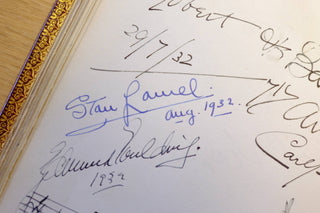 Robert
29/7/32
Stan Laurel.
Aug. 1932.
Edmund Goulding.
1932